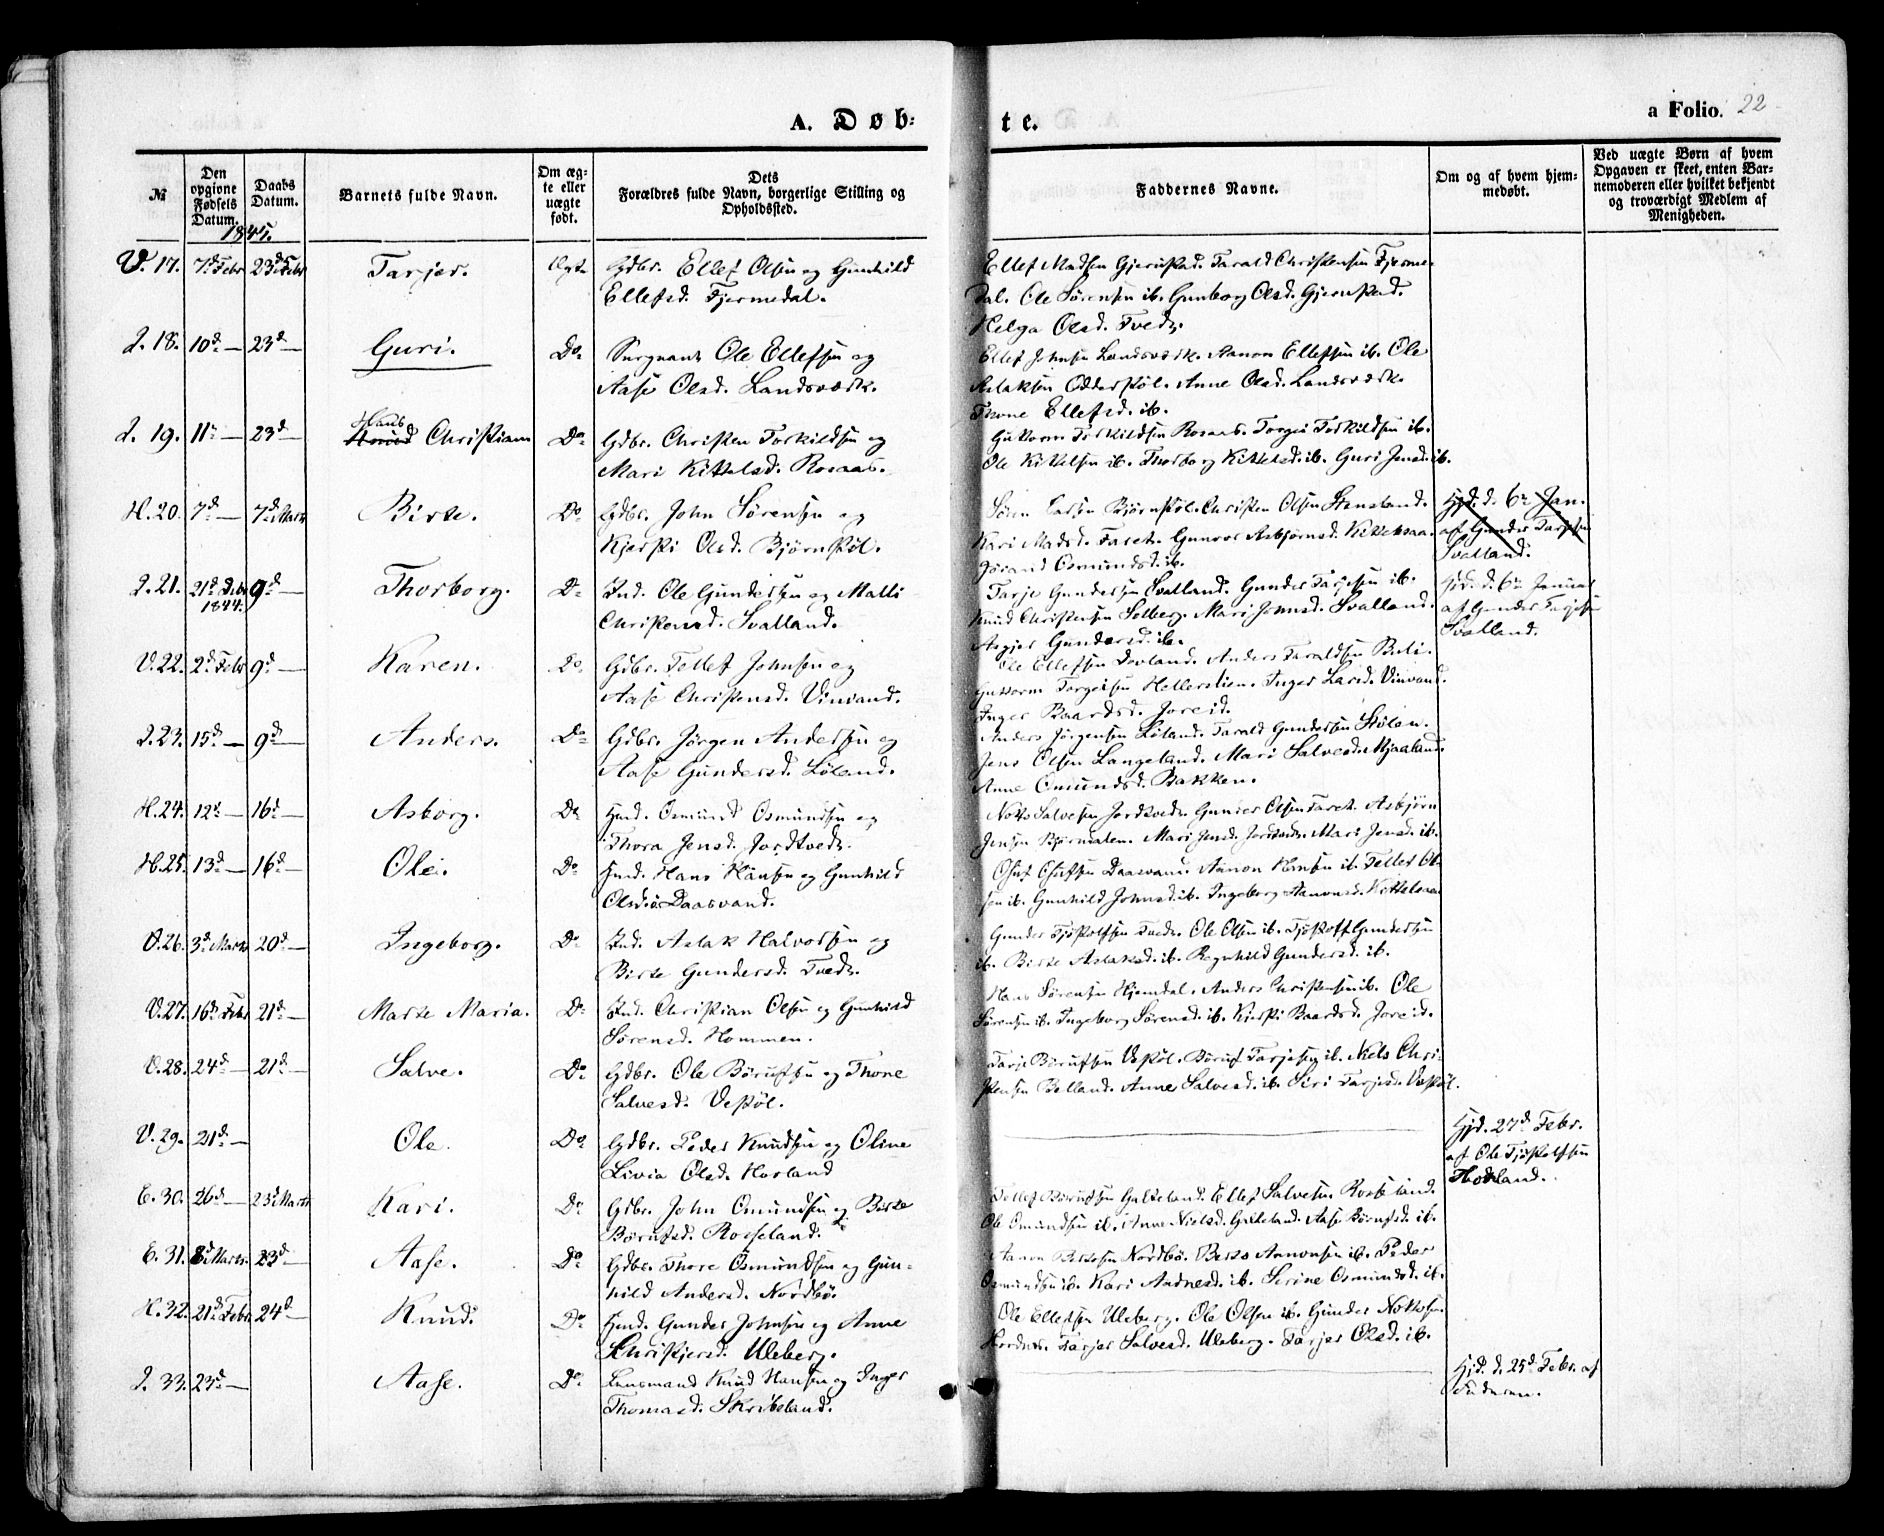 A. Døb-
te.
a Folio. 22
№
Den opgivne Fødsels Datum.
Daabs Datum.
Barnets fulde Navn.
Om ægte eller uægte født.
Dets Forældres fulde Navn, borgerlige Stilling og Opholdssted.
Faddernes Navne.
Om og af hvem hjemmedøbt.
Ved uægte Børn af hvem Opgaven er skeet, enten Barnemoderen eller hvilket bekjendt og troværdigt Medlem af Menigheden.
1845.
V. 17. 7d Febr 23d Febr Tarjer. Ægte Gdbr. Ellef Olsen og Gunhild
Ellefsd. Fjermedal.
Ellef Madsen Gjerustad. Tarald Christensen Fjerme-
dal. Ole Sørensen ib. Gunborg Olsd. Gjerustad.
Helga Olsd. Tvedt.
I. 18. 10d — 23d — Guri. Do Sergeant Ole Ellefsen og
Aase Olsd. Landsværk.
Ellef Johnsen Landsværk. Aanon Ellefsen ib. Ole
Aslaksen Odderstøl. Anne Olsd. Landsværk.
Thone Ellefsd. ib.
I. 19. 11te — 23d — Hans Christian Do Gdbr. Christen Torkildsen og
Mari Kittelsd. Rosaas.
Guttorm Torkildsen Rosaas. Torgei Torkildsen ib.
Ole Kittelsen ib. Thorborg Kittelsd. ib. Guri Jensd. ib.
H. 20. 7d — 7d Marts Birte. Do Gdbr. John Sørensen og
Kjersti Olsd. Bjørnstøl.
Søren Larsen Bjørnstøl. Christen Olsen Stensland.
Kari Madsd. Faret. Gunvor Asbjørnsd. Kittelsaa.
Jørand Osmundsd. ib.
Hjd. d. 6te Jan.
af Gunder Tarjesen
Svalland.
I. 21. 21d Debr 1844. 9d — Thorborg. Do Ind. Ole Gundersen og Malli
Christensd. Svalland.
Tarje Gundersen Svalland. Gunder Tarjesen ib.
Knud Christensen Solberg. Mari Johnsd. Svalland.
Asgjer Gundersd. ib.
Hjd. d. 6te Januar
af Gunder Tarjesen
Svalland.
V. 22. 2d Febr 9d — Karen. Do Gdbr. Tellef Johnsen og
Aase Christensd. Vinvand.
Ole Ellefsen Dovland. Anders Taraldsen Buli.
Guttorm Torgeisen Hellerslien. Inger Larsd. Vinvand.
Inger Baardsd. Joreid.
I. 23. 15d — 9d — Anders. Do Gdbr. Jørgen Andersen og
Aase Gundersd. Løland.
Anders Jørgensen Løland. Tarald Gundersen Stølen.
Jens Olsen Langeland. Mari Salvesd. Mjaaland.
Anne Omundsd. Bakken.
H. 24. 12te — 16d — Asborg. Do Hmd. Osmund Osmundsen og
Thora Jensd. Jordtvedt.
Notto Salvesen Jordtvedt. Gunder Olsen Faret. Asbjørn
Jensen Bjørmalen. Mari Jensd. Jordtvedt. Mari Jensd. ib.
H. 25. 13d — 16d — Ole. Do Hmd. Hans Hansen og Gunhild
Olsd. Daasvand.
Oluf Olufsen Daasvand. Aanon Hansen ib. Tellef Ol-
sen ib. Gunhild Johnsd. ib. Ingeborg Aanonsd. Kittelsaa.
V. 26. 3d Marts 20d — Ingeborg. Do Ind. Aslak Halvorsen og
Birte Gundersd. Tvedt.
Gunder Tjøstolfsen Tvedt. Ole Olsen ib. Tjøstolf Gundersen
ib. Birte Aslaksd. ib. Regnhild Gundersd. ib.
V. 27. 16d Febr 21d — Marte Maria. Do Ind. Christian Olsen og Gunhild
Sørensd. Hommen.
Hans Sørensen Hjemdal. Anders Christensen ib. Ole
Sørensen ib. Ingeborg Sørensd. ib. Kirsti Baardsd. Joreid.
V. 28. 24d — 21d — Salve. Do Gdbr. Ole Børufsen og Thone
Salvesd. Vestøl.
Tarje Børufsen Vestøl. Børuf Tarjesen ib. Niels Chri-
stensen Belland. Anne Salvesd. ib. Siri Tarjesd. Vestøl.
V. 29. 21d — Ole. Do Gdbr. Peder Knudsen og Oline
Livia Olsd. Hovland
Hjd. 27d Febr.
af Ole Tjøstolfsen
Hovland.
E. 30. 26d — 23d Marts Kari. Do Gdbr. John Omundsen og Birte
Børufsd. Rosseland.
Tellef Børufsen Galteland. Ellef Salvesen Rosseland.
Ole Omundsen ib. Anne Nielsd. Galteland. Aase Børufsd. ib.
E. 31. 8d Marts. 23d — Aase. Do Gdbr. Thore Osmundsen og Gun-
hild Andersd. Nordbø.
Aanon Bertesen Nordbø. Berte Aanonsen ib. Peder
Osmundsen ib. Kari Andersd. ib. Serine Osmundsd. ib.
H. 32. 21d Febr. 24d — Knud. Do Hmd. Gunder Johnsen og Anne
Christjersd. Uleberg.
Ole Ellefsen Uleberg. Ole Olsen ib. Gunder Nottosen
Hordnes. Tarjer Salvesd. Uleberg. Tarjer Olsd. ib.
I. 33. 23d — Aase. Do Lensmand Knud Hansen og Inger
Thomasd. Skribeland.
Hjd. d. 25d Febr. af
Faderen.